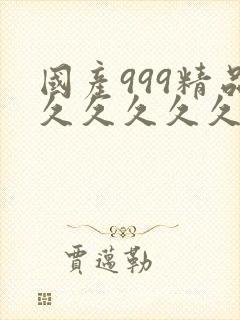 國產999精品
久久久久久
賈邁勒